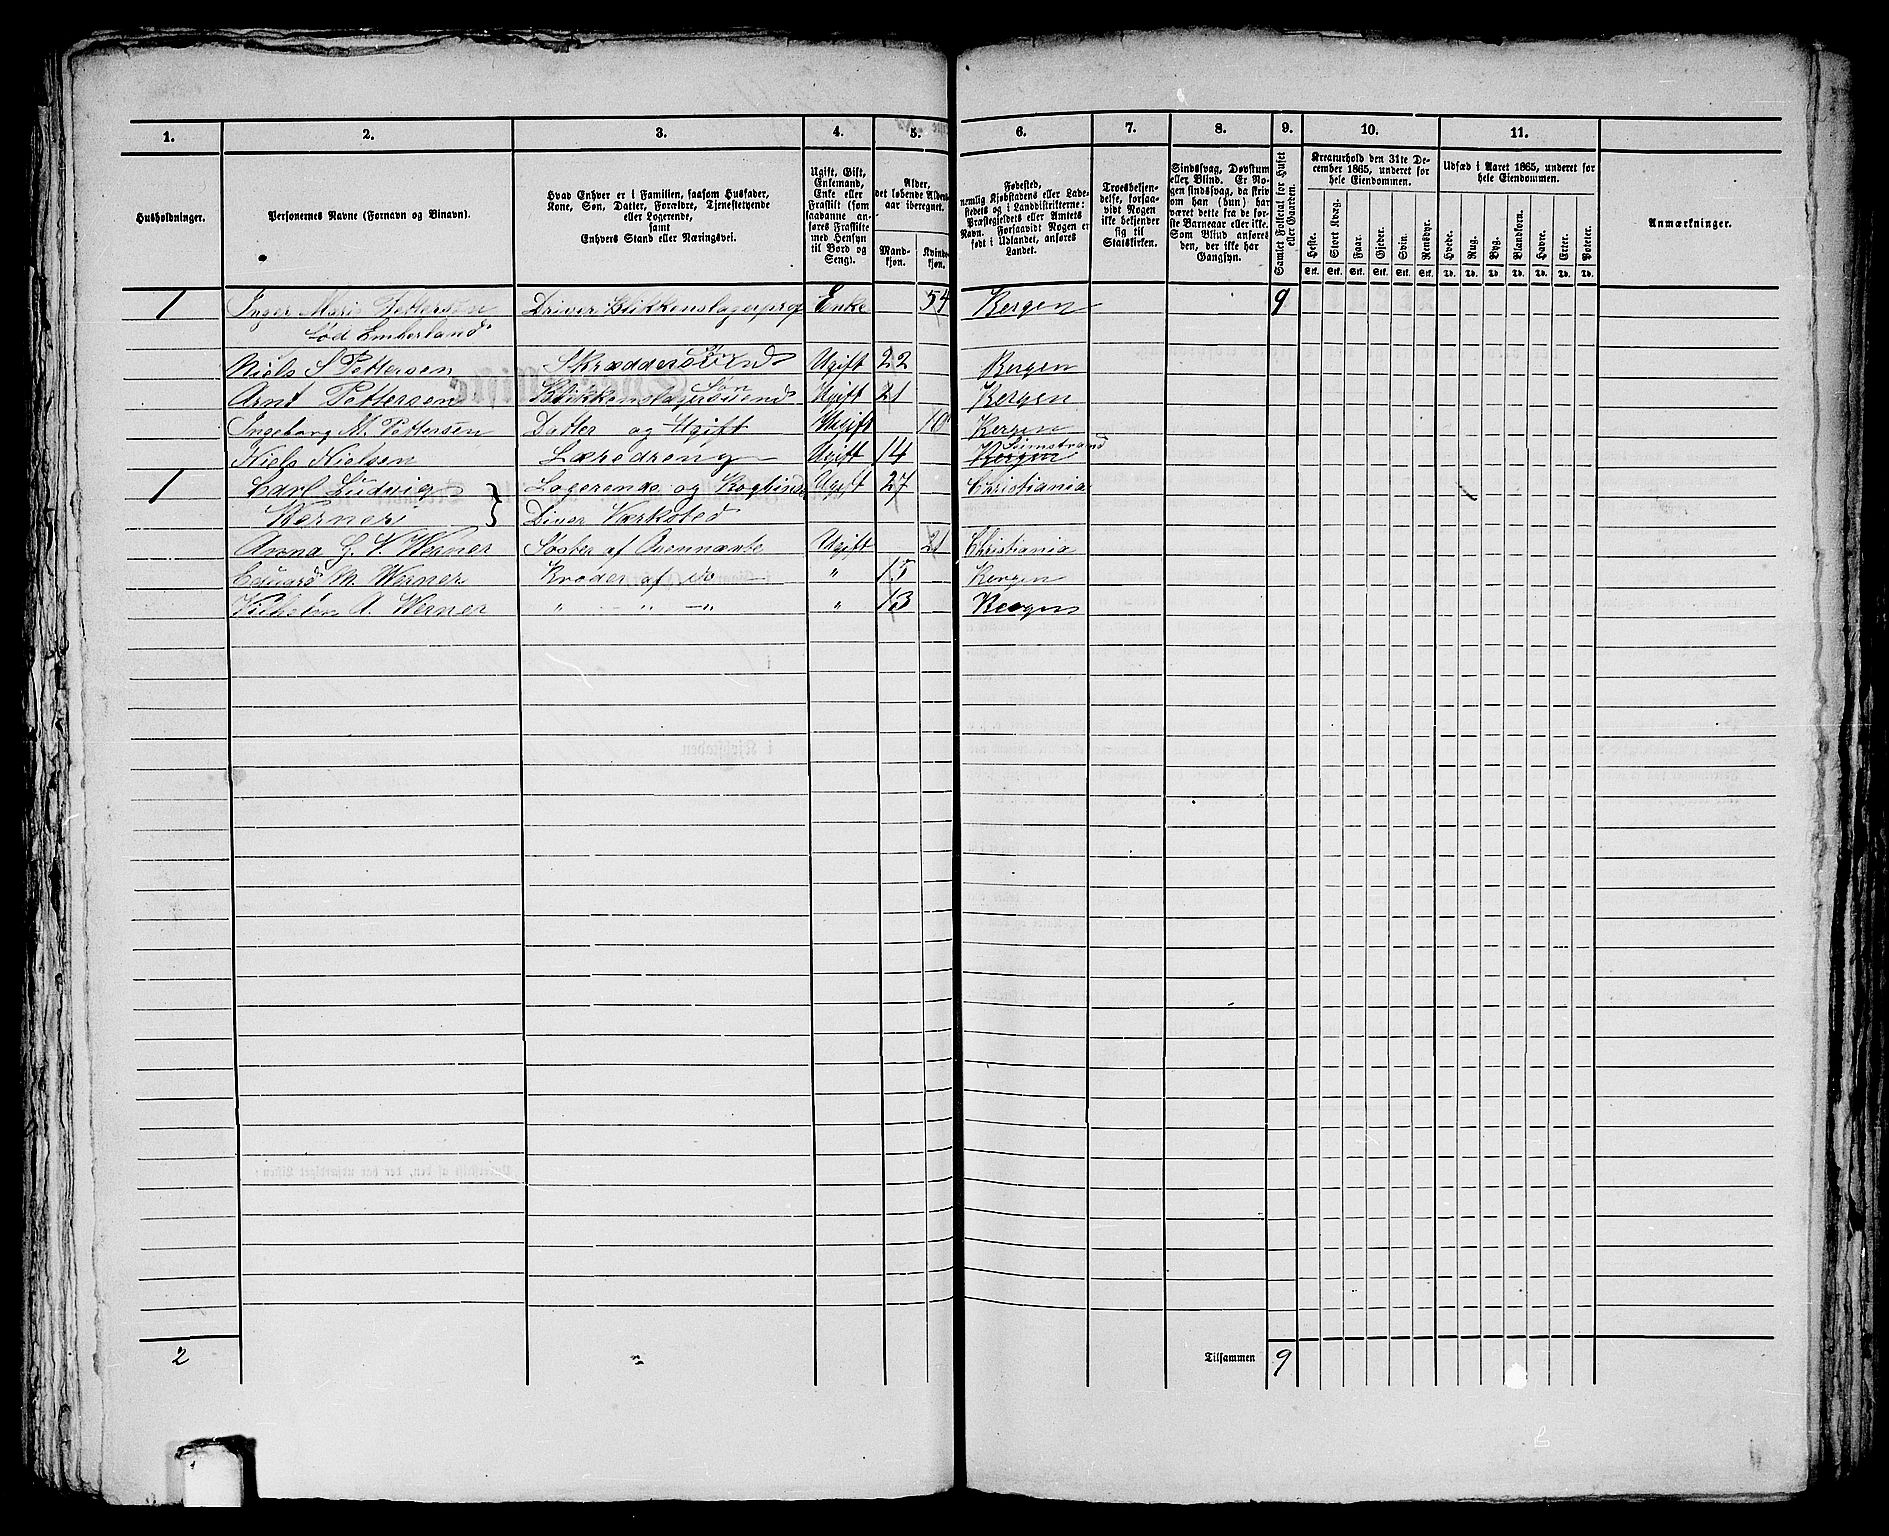 1. 2. 3. 4. 5. 6. 7. 8. 9. 10. 11.
Husholdninger.
Personernes Navne (Fornavn og Binavn).
Hvad Enhver er i Familien, saasom Husfader,
Kone, Søn, Datter, Forældre, Tjenestetyende
eller Logerende,
samt
Enhvers Stand eller Næringsvei.
Ugift, Gift,
Enkemand,
Enke eller
Fraskilt (som
saadanne an-
føres Fraskilte
med Hensyn
til Bord og
Seng).
Alder,
det løbende Alders-
aar iberegnet.
Mand-
kjøn.
Kvinde-
kjøn.
Fødested,
nemlig Kjøbstadens eller Lade-
stedets og i Landdistrikterne:
Præstegjeldets eller Amtets
Navn. Forsaavidt Nogen er
født i Udlandet, anføres
Landet.
Troesbekjen-
delse, forsaa-
vidt Nogen
ikke bekjender
sig til
Statskirken.
Sindssvag, Døvstum
eller Blind. Er No-
gen sindssvag, da skri-
ves om han (hun) har
været dette fra de før-
ste Barneaar eller ikke.
Som Blind anføres
den, der ikke har
Gangsyn.
Samlet Folketal for Huset
eller Gaarden.
Kreaturhold den 31te De-
cember 1865, underet for
hele Eiendommen.
Heste. Stort Kvæg. Faar. Gjeder. Svin. Rensdyr.
Stk. Stk. Stk. Stk. Stk. Stk.
Udsæd i Aaret 1865, underet for
hele Eiendommen.
Hvede. Rug. Byg. Blandkorn. Havre. Erter. Poteter.
Td. Td. Td. Td. Td. Td. Td.
Anmærkninger.
1 Inger Marie Pettersen Driver Blikkenslagerprof Enke 54 Bergen 9
fød Emberland
Niels S Pettersen Skræddersvend Søn Ugift 22 Bergen
Arnt Pettersen Blikkenslagersvend Søn Ugift 21 Bergen
Ingeborg M. Pettersen Datter og Ugift Ugift 18 Bergen
Niels Nielsen Læredreng Ugift 14 Bergen
1 Carl Ludvig Logerende og Bogbinder Ugift 27 Christiania
Werner Driver Værksted
Anna G. V. Werner Søster af Ovennævnte Ugift 21 Christiania
Eduard M. Werner Broder af do " 15 Bergen
Vilhelm A. Werner " " " " 13 Bergen
2 Tilsammen 9